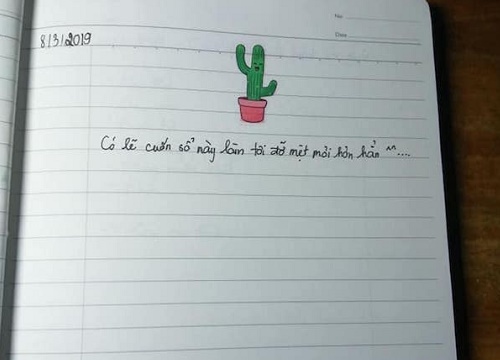 No:
Date:
8/3/2019
Có lẽ cuốn sổ này làm tôi đỡ mệt mỏi hơn hẳn ^^....